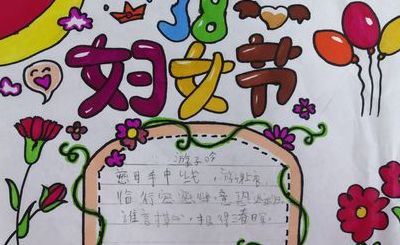 38
妇女节
游子吟
慈母手中线，游子身上衣，
临行密密缝，意恐迟迟归，
谁言寸草心，报得三春晖。